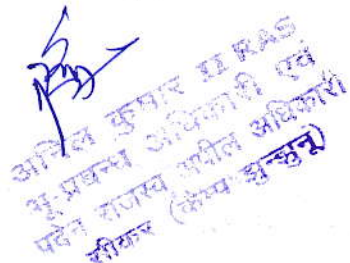 अनिल कुमार II RAS
भू.प्रबन्ध अधिकारी एवं
पदेन राजस्व अपील अधिकारी
सीकर (कैम्प झुन्झुनू)